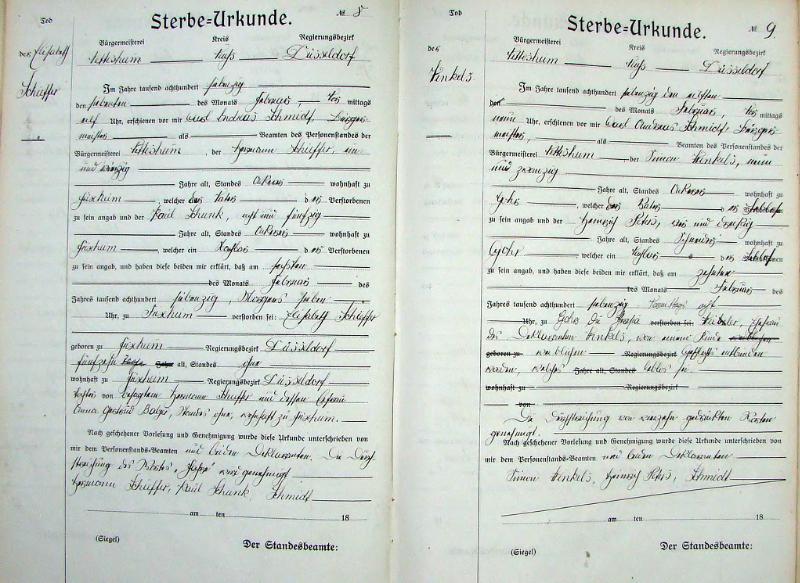 Tod
des Elisabeth
Schieffer
Sterbe=Urkunde.
№ 8
Bürgermeisterei Kreis Regierungsbezirk
Düsseldorf
Im Jahre tausend achthundert siebenzig
den siebenten des Monats Februar, vormittags
elf Uhr, erschienen vor mir Carl Andreas Schmidt, Bürger-
meister als Beamten des Personenstandes der
Bürgermeisterei der Hermann Schieffer, ein
und dreizig
Jahre alt, Standes Ackerer wohnhaft zu
welcher der Vater des Verstorbenen
zu sein angab und der Schunk, acht und fünfzig
Jahre alt, Standes Ackerer wohnhaft zu
welcher ein Nachbar des Verstorbenen
zu sein angab, und haben diese beiden mir erklärt, daß am sechsten
des Monats Februar des
Jahres tausend achthundert siebenzig, Morgens sieben
Uhr, zu verstorben sei: Elisabeth Schieffer
geboren zu Regierungsbezirk Düsseldorf
fünfzehn Jahre alt, Standes ohne
wohnhaft zu Regierungsbezirk Düsseldorf
Tochter von besagtem Hermann Schieffer und dessen Ehefrau
Anna Gertrud Standes ohne, wohnhaft zu
Nach geschehener Vorlesung und Genehmigung wurde diese Urkunde unterschrieben von
mir dem Personenstands-Beamten und beiden Deklaranten. Die Durch-
streichung des Wortes Jahre wird genehmigt
Hermann Schieffer, Schunk, Schmidt
am ten 18
(Siegel) Der Standesbeamte:
Tod
des
Winkels
Sterbe=Urkunde.
№ 9.
Bürgermeisterei Kreis Regierungsbezirk
Düsseldorf
Im Jahre tausend achthundert siebenzig den elften
den des Monats Februar, vormittags
neun Uhr, erschienen vor mir Carl Andreas Schmidt Bürger-
meister, als Beamten des Personenstandes der
Bürgermeisterei der Simon Winkels, neun
und zwanzig
Jahre alt, Standes Ackerer wohnhaft zu
Gohr, welcher der Vater des
zu sein angab und der Heinrich Peters, und dreißig
Jahre alt, Standes Schreiner wohnhaft zu
Gohr, welcher ein Nachbar des
zu sein angab, und haben diese beiden mir erklärt, daß am zehnten
des Monats Februar des
Jahres tausend achthundert siebenzig
Uhr, zu Gohr die verstorben sei: Ehefrau
des Deklaranten Winkels, von einem Kinde
geboren zu weiblichen Regierungsbezirk Geschlechts entbunden
worden, welches Jahre alt, Standes leblos sei
wohnhaft zu Regierungsbezirk
von
Die Durchstreichung von gedruckten Wörtern
genehmigt.
Nach geschehener Vorlesung und Genehmigung wurde diese Urkunde unterschrieben von
mir dem Personenstands-Beamten und beiden Deklaranten
Simon Winkels, Heinrich Peters, Schmidt
am ten 18
(Siegel) Der Standesbeamte: